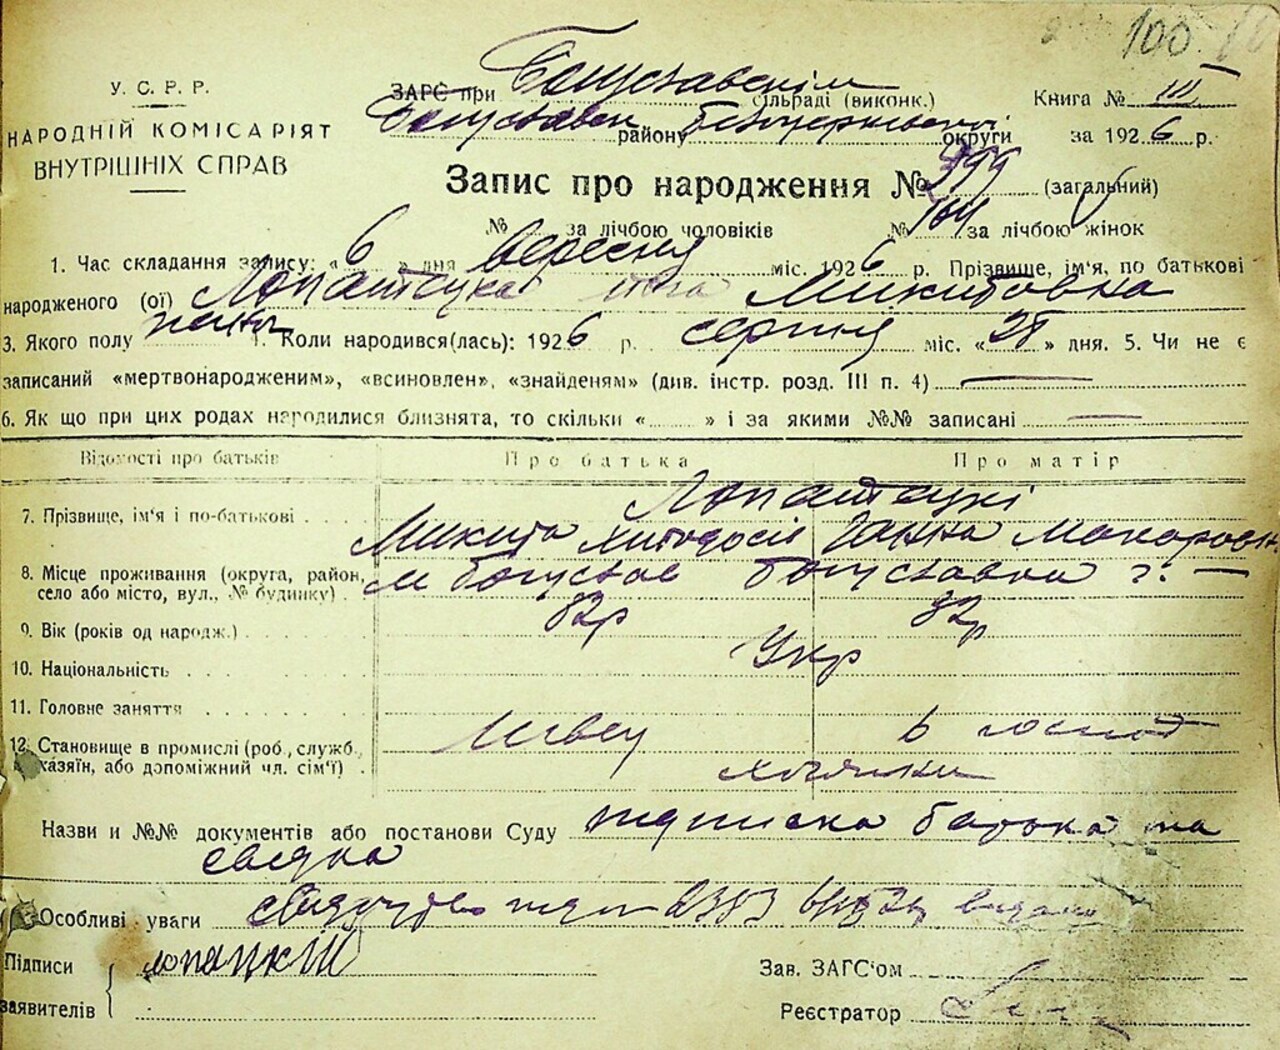 100
У. С. Р. Р.
НАРОДНІЙ КОМІСАРІЯТ
ВНУТРІШНІХ СПРАВ
ЗАГС при Богуславскім сільраді (виконк.)
Богуславськ району Білоцерківської округи
Книга № III
за 1926 р.
Запис про народження № 399 (загальний)
№ за лічбою чоловіків № 164 за лічбою жінок
1. Час складання запису: « 6 » дня вересня міс. 1926 р. Прізвище, ім'я, по батькові
народженого (ої) Лопатецка Микитовна
3. Якого полу жіноч. Коли народився(лась): 1926 р. серпня міс. «28» дня. 5. Чи не є
записаний «мертвонародженим», «всиновлен», «знайденям» (див. інстр. розд. III п. 4)
6. Як що при цих родах народилися близнята, то скільки « » і за якими №№ записані
Відомості про батьків Про батька Про матір
Лопатецкі
7. Прізвище, ім'я і по-батькові Микита Ганна Макаровн
8. Місце проживання (округа, район, м Богуслав Богуславка г. —
село або місто, вул., № будинку)
9. Вік (років од народж.) 32р 32р
10. Національність Укр
11. Головне заняття
12. Становище в промислі (роб., служб, Швец в господ
хазяїн, або допоміжний чл. сім'ї)
Назви и №№ документів або постанови Суду підписка батька та
свідка
Особливі уваги свідоцтво 2383 видано
Підписи Лопацкій
заявителів
Зав. ЗАГС'ом
Реєстратор